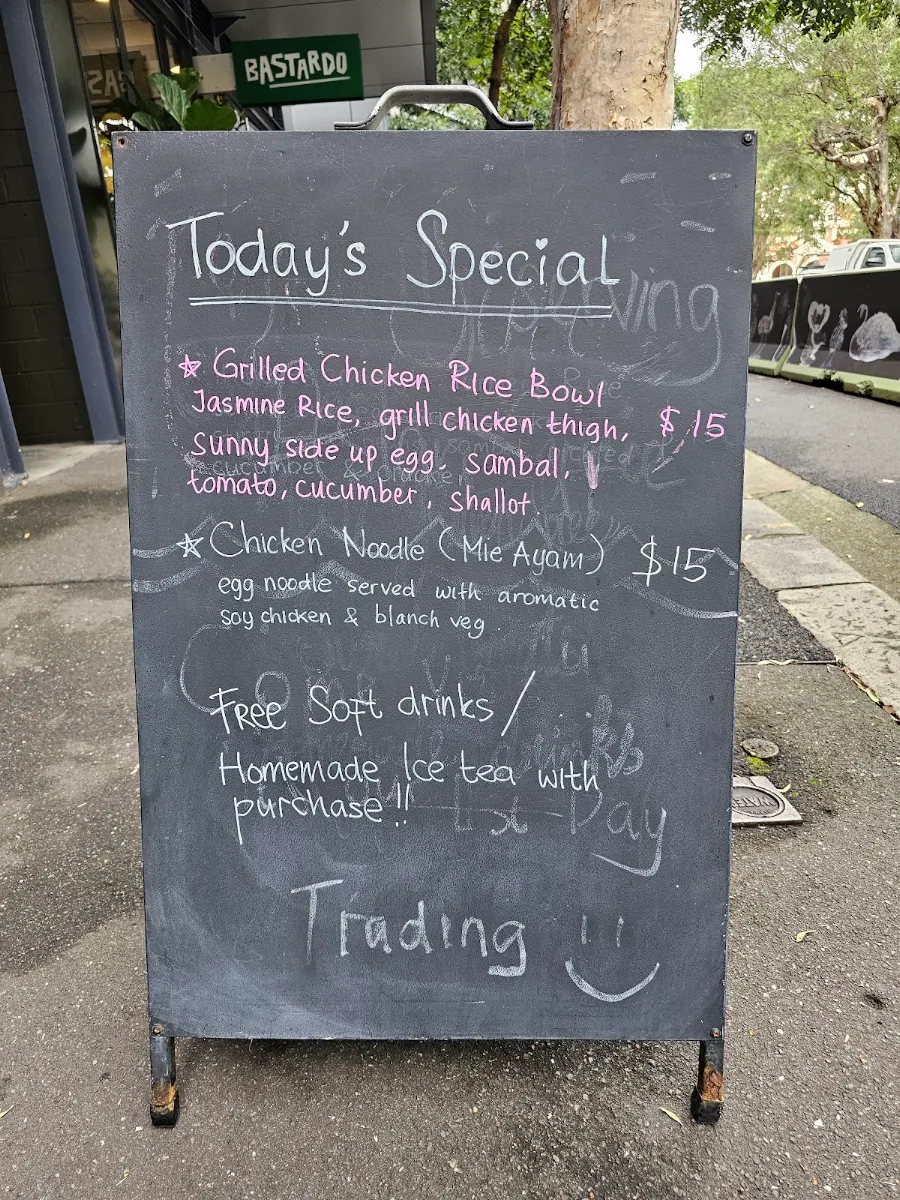 BASTARDO
Today's Special
☆ Grilled Chicken Rice Bowl
Jasmine Rice, grill chicken thigh, $15
sunny side up egg, sambal,
tomato, cucumber, shallot.
☆ Chicken Noodle (Mie Ayam) $15
egg noodle served with aromatic
soy chicken & blanch veg.
Free Soft drinks/
Homemade Ice tea with
purchase!!
drinks
1st Day
Trading